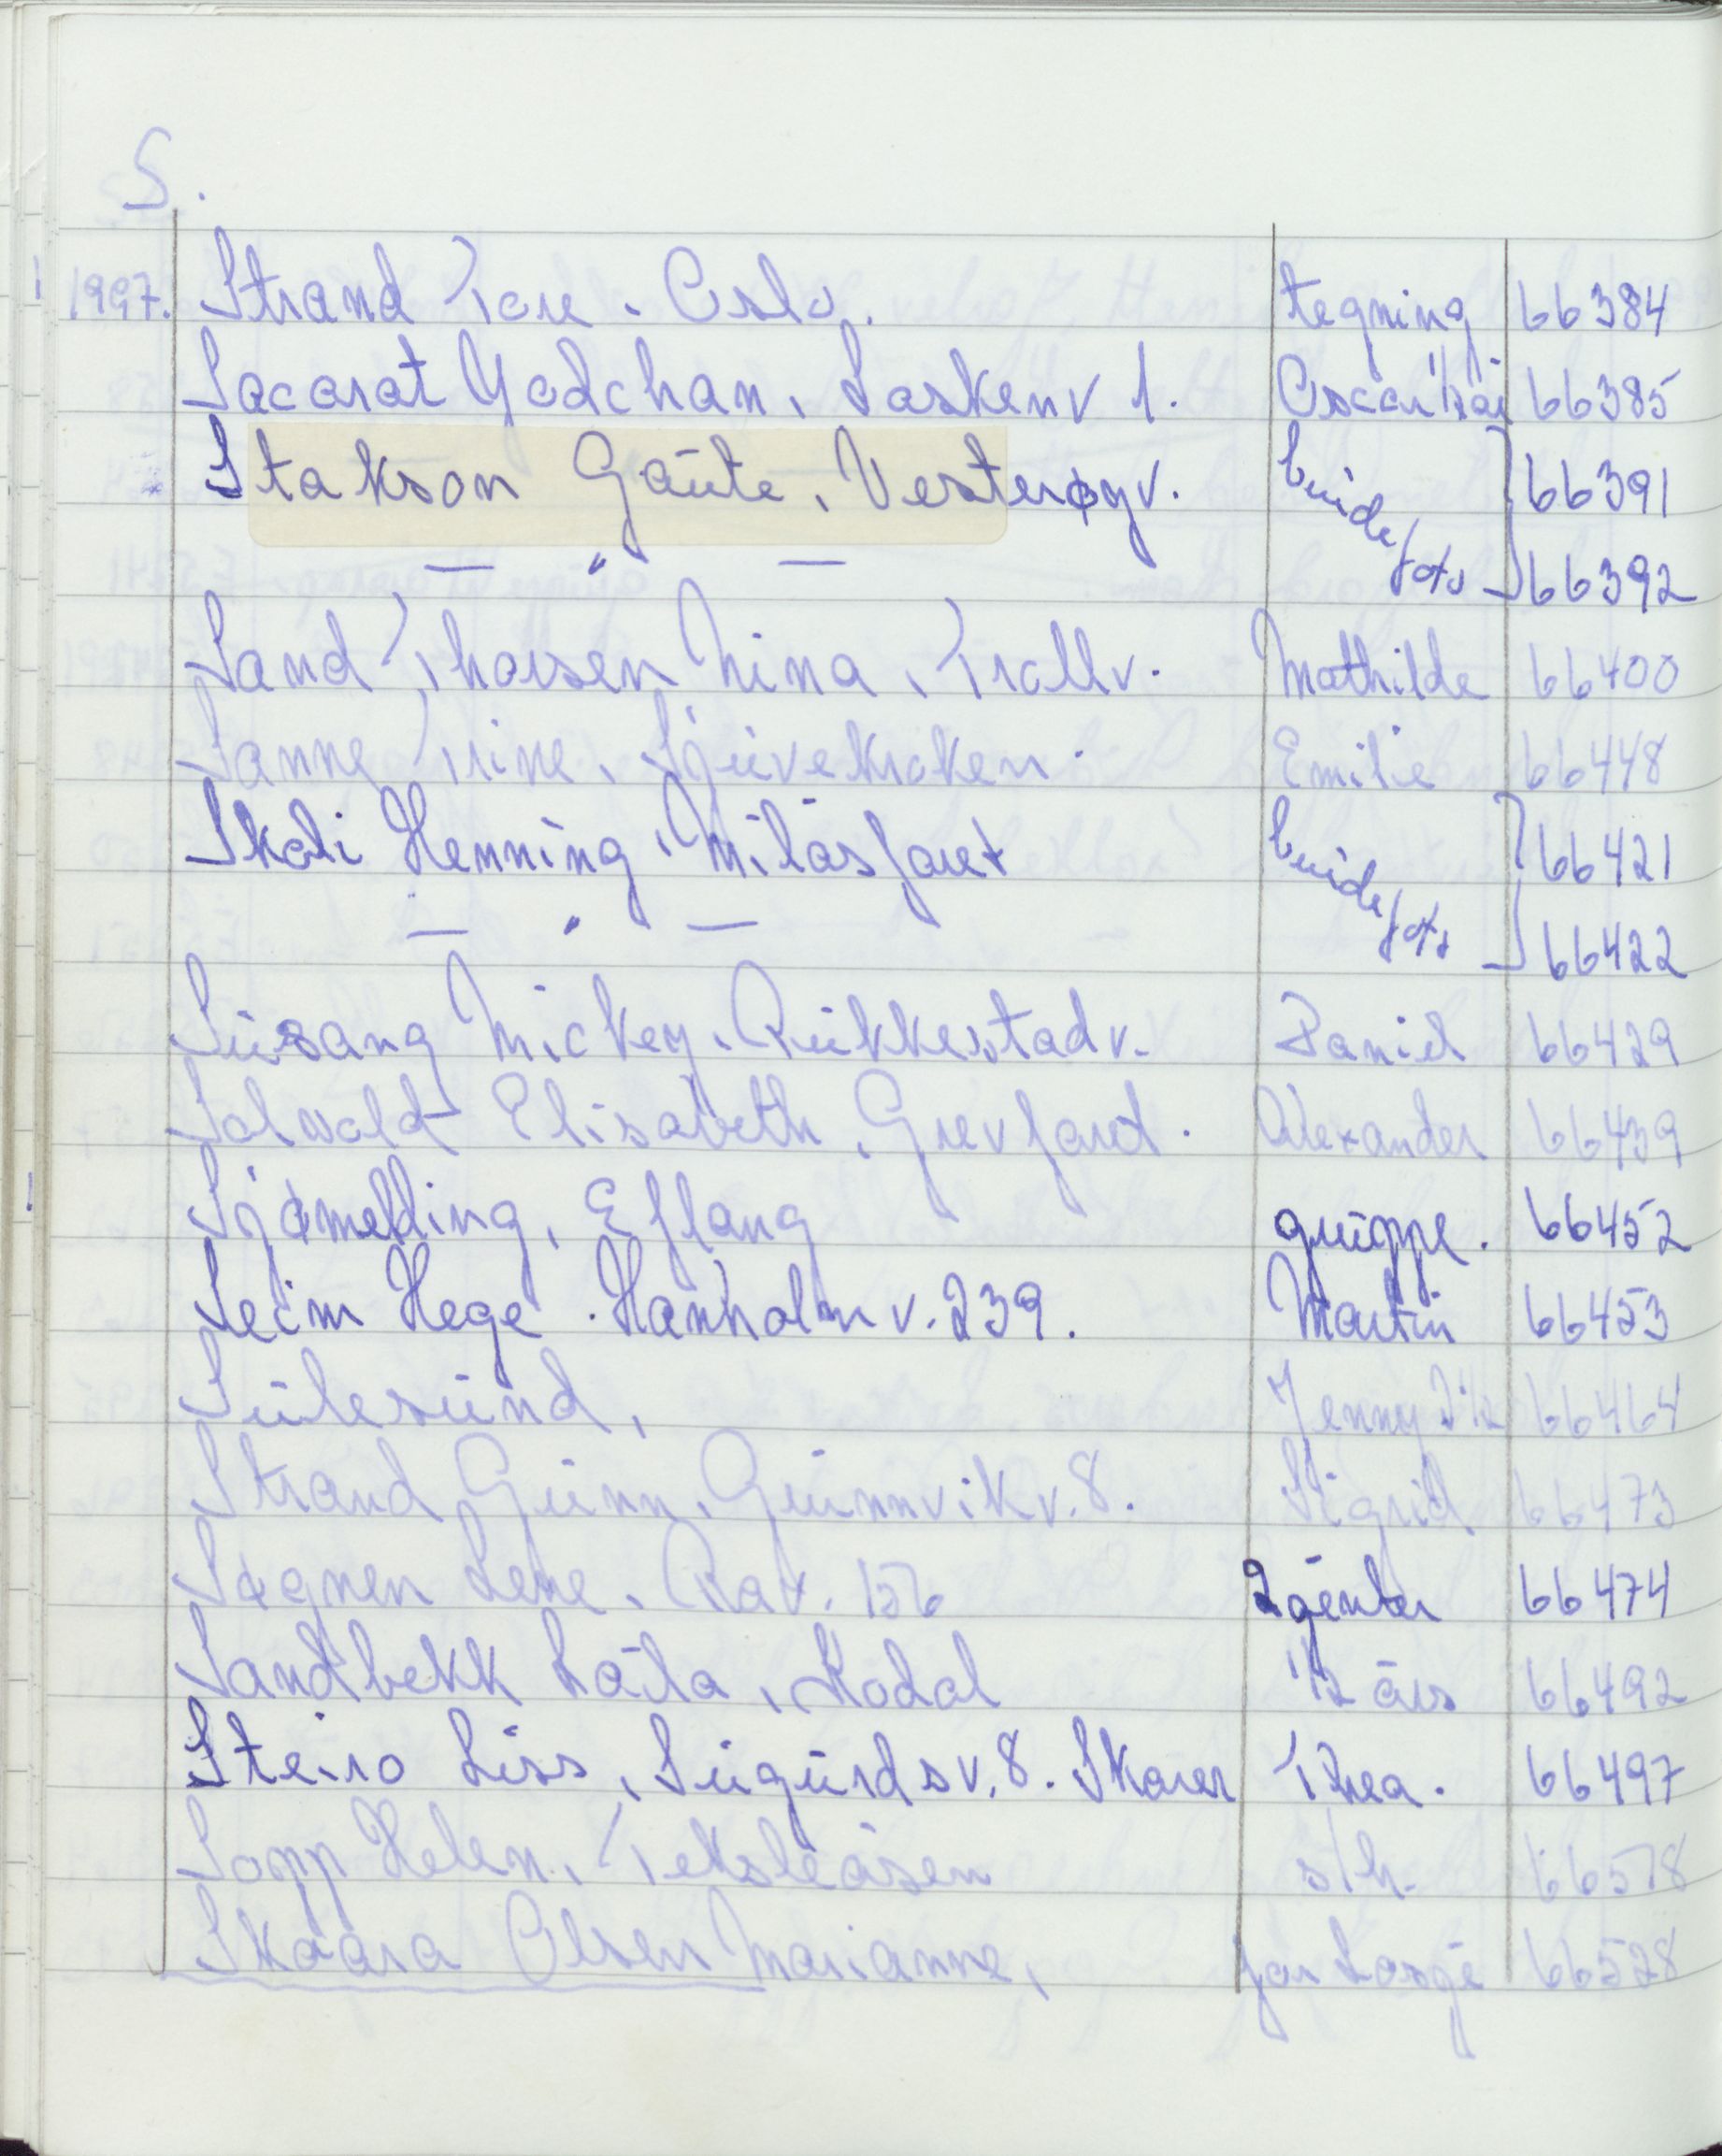 S.
1997. Strand Tore. Oslo. tegning 66384
Sacarat Yodchan, Laskenv 1. Oscar 1/2 år 66385
Stakson Gaute, Vesterøyv. brudefoto 66391
— " — 66392
Sand Thorsen Nina, Trollv. Mathilde 66400
Sanne Trine, Sjuvekroken. Emilie 66448
Skoli Henning, Milåsfaret brudefoto 66421
— " — 66422
Susang Mickey. Rukkestadv. Daniel 66429
Solwold Elisabeth, Grevfaret. Alexander 66439
Sjømelling, Eftang gruppe. 66452
Seim Hege. Hauholm v. 239. Martin 66453
Sulesund, Jenny 2 1/2 66464
Strand Gunn, Gunnvikv. 8. Sigrid 66473
Søgnen Lene. Rav. 156 2 jenter 66474
Sandbekk Laila, Kodal 1/2 års 66492
Steiro Liss, Sigurdsv. 8. Skaren Thea. 66497
Sopp Helen, Teksleåsen s/h. 66518
Skaara Olsen Marianne, for Losje 66528